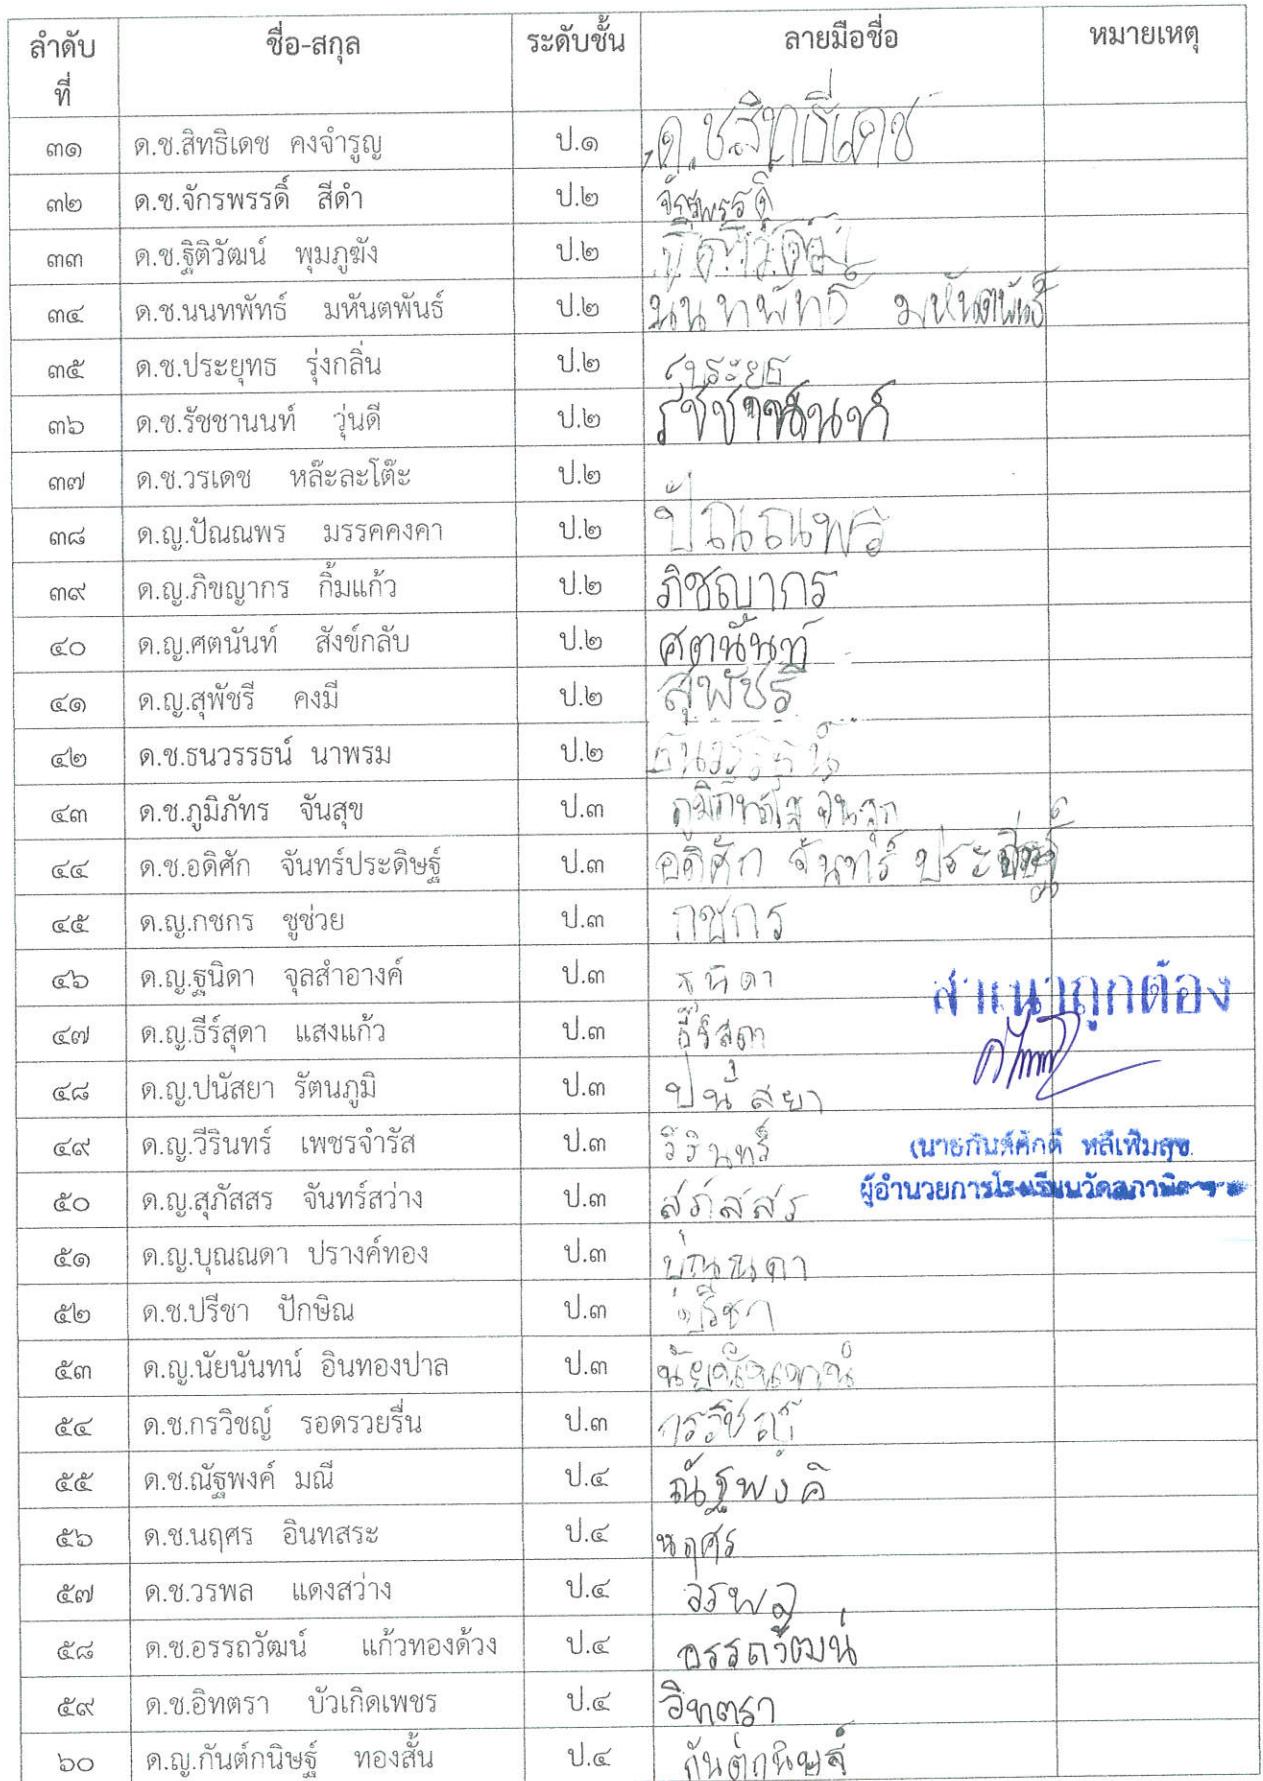 ลำดับที่ ชื่อ-สกุล ระดับชั้น ลายมือชื่อ หมายเหตุ
๓๑ ด.ช.สิทธิเดช คงจำรูญ ป.๑ ด.ช.สิทธิเดช
๓๒ ด.ช.จักรพรรดิ์ สีดำ ป.๒ จักรพรรดิ
๓๓ ด.ช.ฐิติวัฒน์ พุมภูฆัง ป.๒
๓๔ ด.ช.นนทพัทธ์ มหันตพันธ์ ป.๒ นนทพัทธ์ มหันตพันธ์
๓๕ ด.ช.ประยุทธ รุ่งกลิ่น ป.๒
๓๖ ด.ช.รัชชานนท์ วุ่นดี ป.๒
๓๗ ด.ช.วรเดช หล๊ะละโต๊ะ ป.๒
๓๘ ด.ญ.ปัณณพร มรรคคงคา ป.๒ ปัณณพร
๓๙ ด.ญ.ภิขญากร กิ้มแก้ว ป.๒ ภิชญากร
๔๐ ด.ญ.ศตนันท์ สังข์กลับ ป.๒ ศตนันท์
๔๑ ด.ญ.สุพัชรี คงมี ป.๒ สุพัชรี
๔๒ ด.ช.ธนวรรธน์ นาพรม ป.๒
๔๓ ด.ช.ภูมิภัทร จันสุข ป.๓
๔๔ ด.ช.อดิศัก จันทร์ประดิษฐ์ ป.๓ อดิศัก จันทร์
๔๕ ด.ญ.กชกร ชูช่วย ป.๓ กชกร
๔๖ ด.ญ.ฐนิดา จุลสำอางค์ ป.๓
สำเนาถูกต้อง
๔๗ ด.ญ.ธีร์สุดา แสงแก้ว ป.๓
๔๘ ด.ญ.ปนัสยา รัตนภูมิ ป.๓ ปนัสยา
๔๙ ด.ญ.วีรินทร์ เพชรจำรัส ป.๓ วีรินทร์
๕๐ ด.ญ.สุภัสสร จันทร์สว่าง ป.๓ สภัสสร
ผู้อำนวยการโรงเรียน
๕๑ ด.ญ.บุณณดา ปรางค์ทอง ป.๓ บุณณดา
๕๒ ด.ช.ปรีชา ปักษิณ ป.๓ ปรีชา
๕๓ ด.ญ.นัยนันทน์ อินทองปาล ป.๓
๕๔ ด.ช.กรวิชญ์ รอดรวยรื่น ป.๓ กรวิชญ์
๕๕ ด.ช.ณัฐพงค์ มณี ป.๔ ณัฐพงค์
๕๖ ด.ช.นฤศร อินทสระ ป.๔ นฤศร
๕๗ ด.ช.วรพล แดงสว่าง ป.๔ วรพล
๕๘ ด.ช.อรรถวัฒน์ แก้วทองด้วง ป.๔ อรรถวัฒน์
๕๙ ด.ช.อิทตรา บัวเกิดเพชร ป.๔ อิทตรา
๖๐ ด.ญ.กันต์กนิษฐ์ ทองสั้น ป.๔